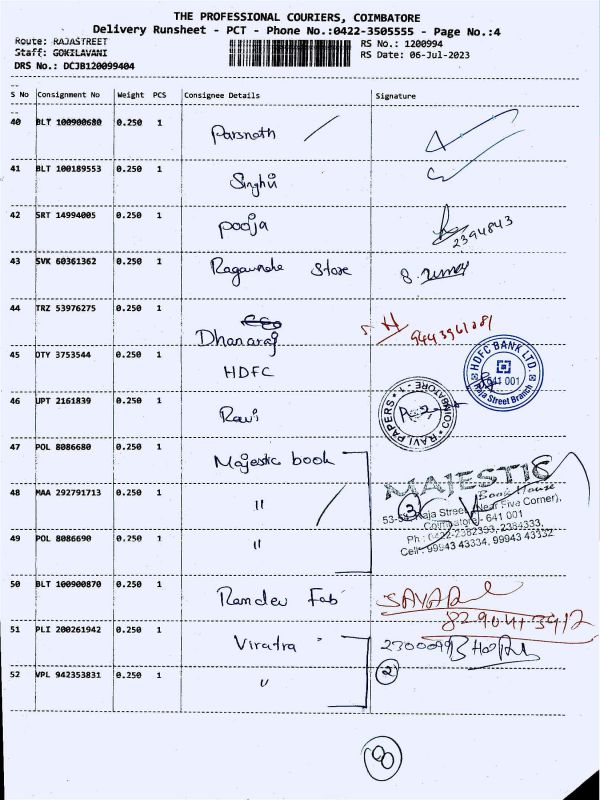 THE PROFESSIONAL COURIERS, COIMBATORE
Delivery Runsheet - PCT - Phone No.:0422-3505555 - Page No.:4
Route: RAJASTREET RS No.: 1200994
Staff: GOKILAVANI RS Date: 06-Jul-2023
DRS No.: DCJB120099404
S No Consignment No Weight PCS Consignee Details Signature
40 BLT 100900680 0.250 1 Parsnath
41 BLT 100189553 0.250 1 Singhvi
42 SRT 14994005 0.250 1 pooja 2394843
43 SVK 60361362 0.250 1 Store
44 TRZ 53976275 0.250 1 Dhanaraj
45 OTY 3753544 0.250 1 HDFC
HDFC BANK LTD.
641 001
Raja Street Branch
46 UPT 2161839 0.250 1 Ravi
RAVI PAPERS COIMBATORE - 1
47 POL 8086680 0.250 1 Majestic book
MAJESTIC
Book House
48 MAA 292791713 0.250 1 "
3
Raja Street (Near Five Corner),
Coimbatore - 641 001
49 POL 8086690 0.250 1 "
Ph : 0422-2382333, 2384333,
Cell : 99943 43334, 99943 43332
50 BLT 100900870 0.250 1 Ramdev Fab
51 PLI 200261942 0.250 1 Viratra
52 VPL 942353831 0.250 1 " 2
8